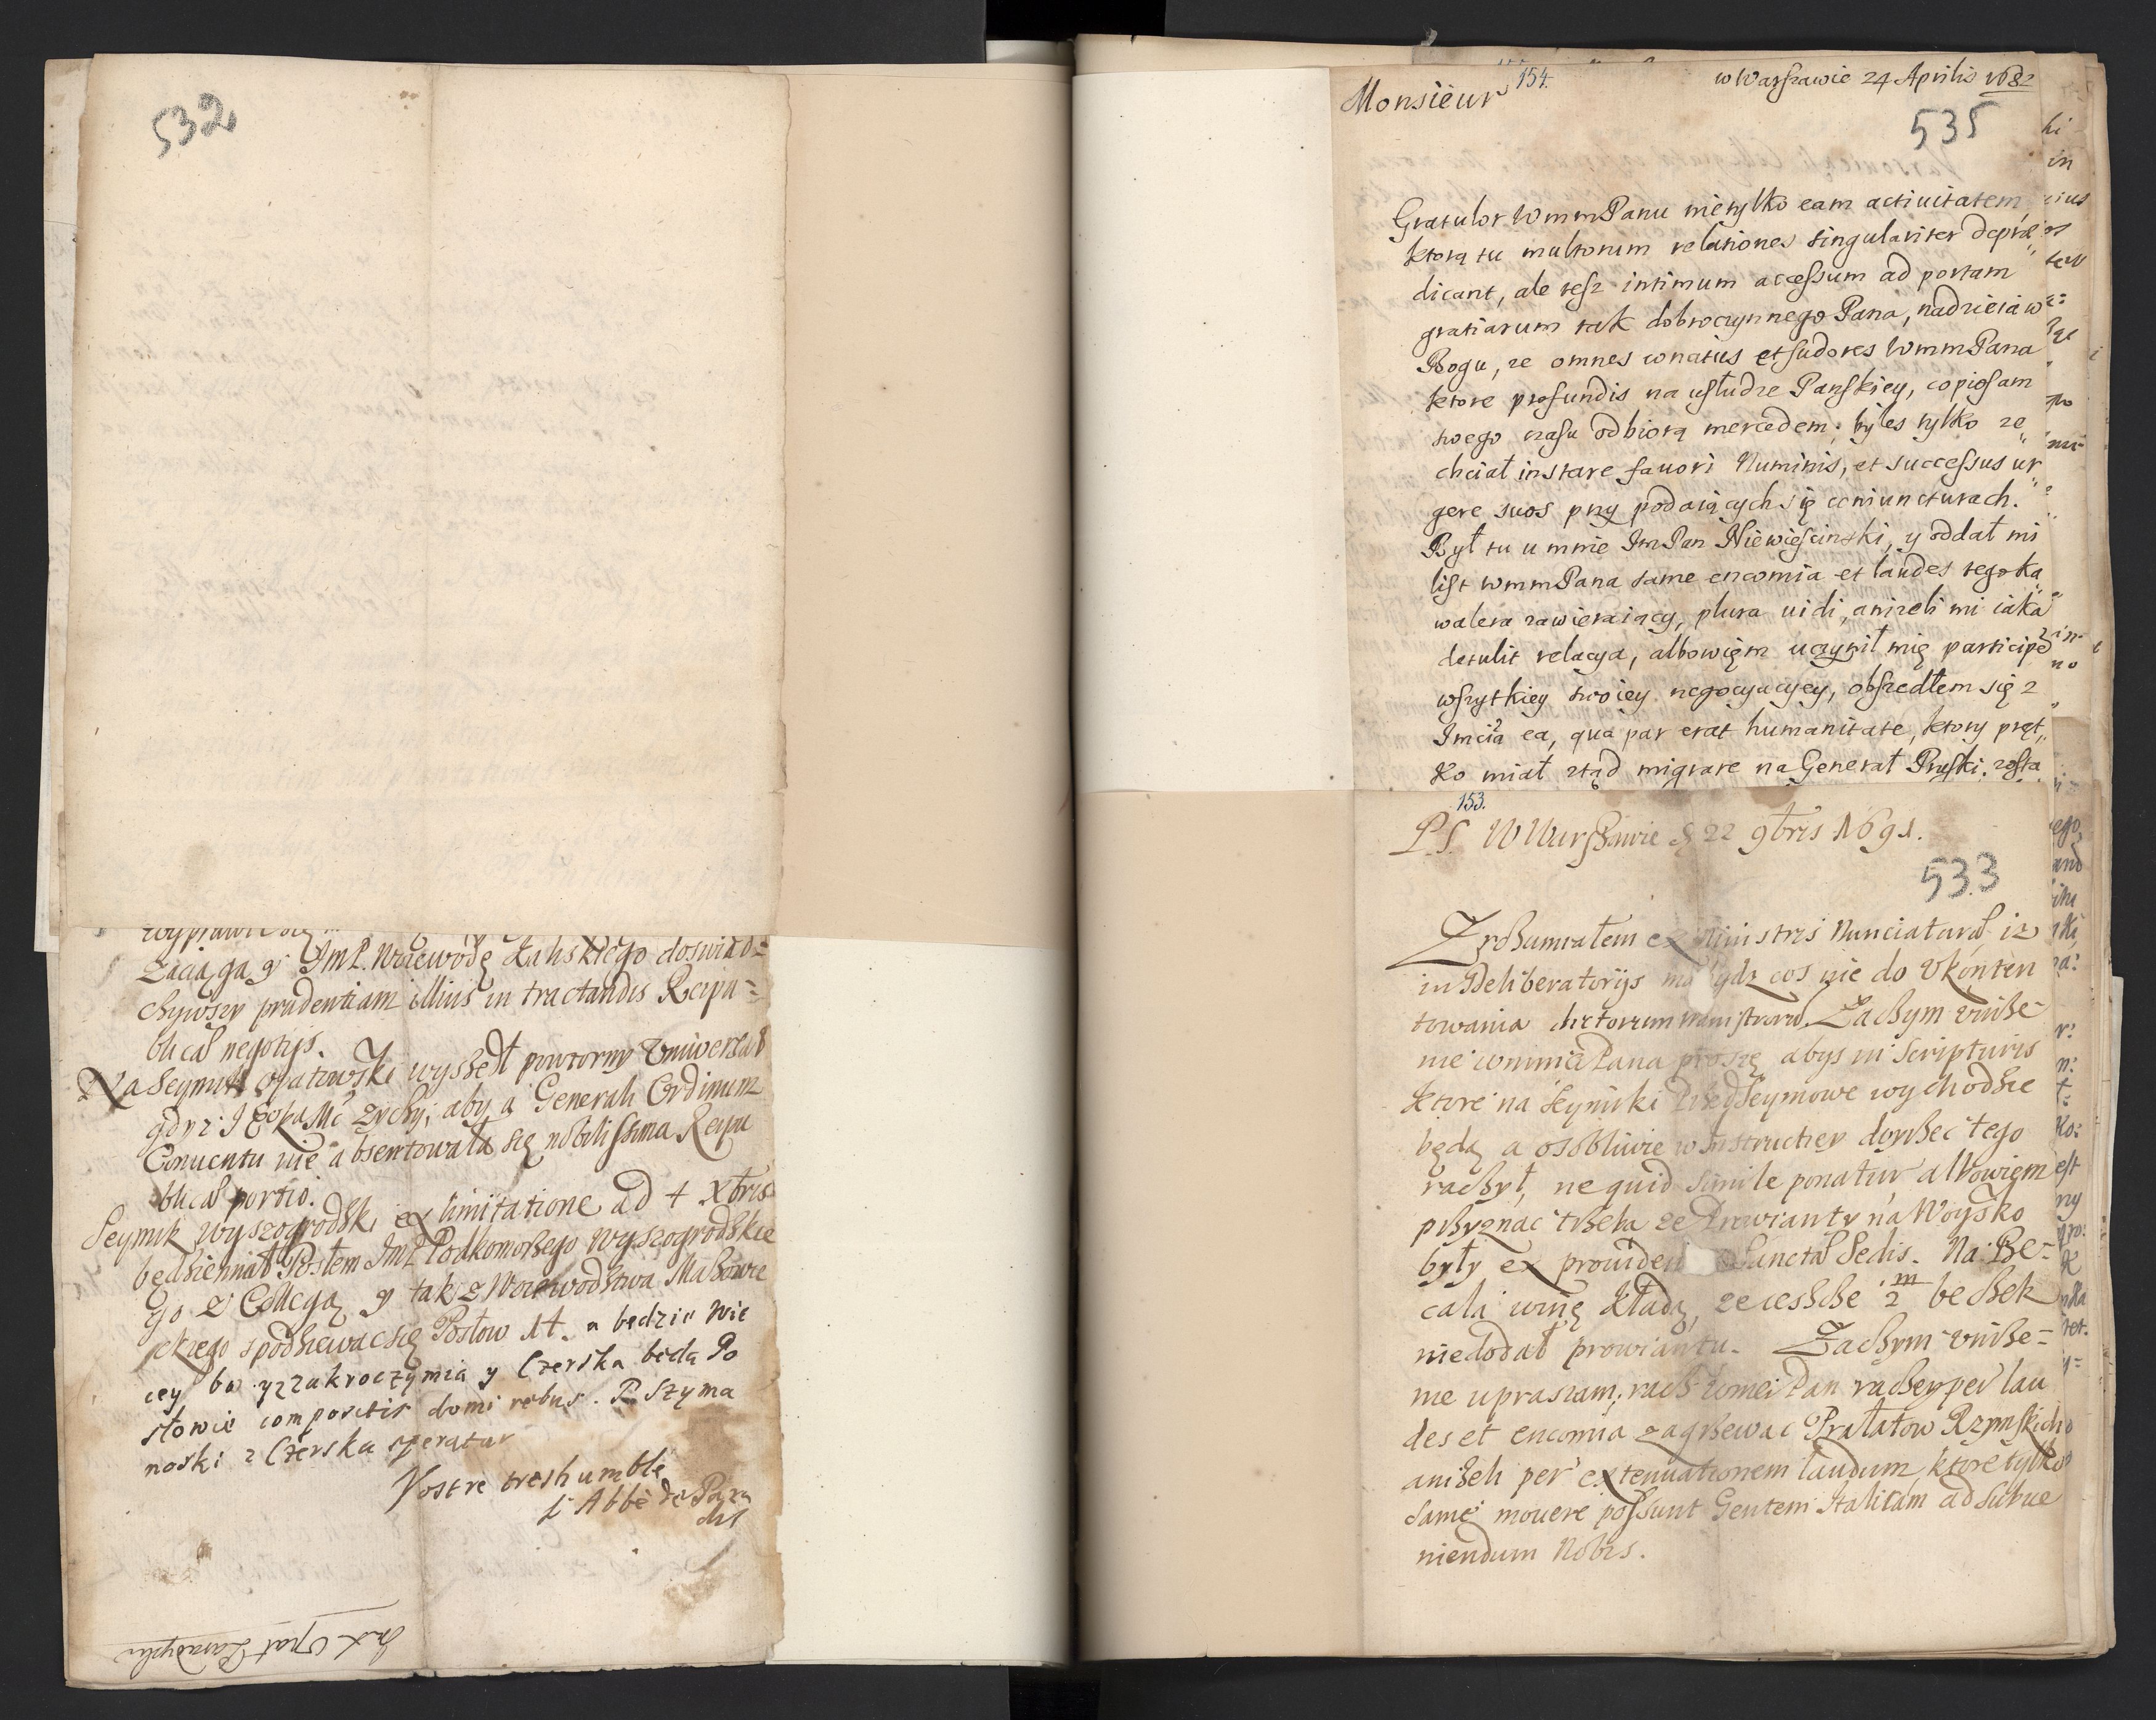 532
Zaciąga y Jmć P. Woiewodę Ruhskiego doswiad=
chywszy prudentiam illius in tractandis Reipu=
blicæ negotijs.
Na Seymik Opatowski wyshedł powtorny Vniversał
gdyz J Kro Mć zychy, aby a Generali Ordinum
Conuentu nie absentowała się nobilissima Reipu
blicæ portio.
Seymik Wyszogrodski ex limitatione ad 4 Xbris
będhie miał Posłem Jmć Podkomorzego Wyszogrodskie
go z Collegą y tak z Woiewodstwa Mazowie
ckiego spodhiewac się Posłow 14. a bedzie wie
cey bo y z Zakroczymia y Czerska beda Po
słowie compositis domi rebus. P. Szyma
noski z Czerska speratur
Vostre tres humble
L'Abbè de Para
dis
Jmć X Opat Paradyski
154.
Monsieur
w Warszawie 24 Aprilis 1682
535
Gratulor WmmPanu nie tylko eam actiuitatem
ktorą tu multorum relationes singulariter depræ
dicant, ale tesz intimum accessum ad portam
gratiarum tak dobroczynnego Pana, nadzieia w
Bogu, ze omnes conatus et sudores WmmPana
ktore profundis na usłudze Panskiey, copiosam
swego czasu odbiorą mercedem; byles tylko ze
chciał instare fauori Numinis, et successus ur
gere suos przy podaiących się coniuncturach.
Był tu u mnie JmPan Niewiescinski, y oddał mi
list WmmPana same encomia et laudes tego ka
walera zawieraiący, plura uidi, anizeli mi iaka
detulit relacya, albowięm uczynił mię participē
wszytkiey swoiey negocyacyey, obszedłem się z
Imcią ea, qua par erat humanitate, ktory pręt
ko miał ztąd migrare na Generał Pruski, zosta
153.
PS. W Warszawie d 22 9bris 1691.
533
Zrozumiałem ex Ministris Nunciaturæ iz
in Deliberatorijs ma bydz cos nie do Vkonten
towania dictorum Ministrorum. Zaczym vniże=
nie wmmci Pana proszę abys in Scripturis
ktore na Seymiki Przedseymowe wychodzie
będą a osobliwie w Instructiey doyzec tego
raczył, ne quid simile ponatur albowiem
przyznac trzeba ze Prowianty na Woysko
były ex prouiden Sanctæ Sedis. Na Rze=
cala winę kładą, ze iescze 2 m beczek
niedodał prowiantu. Zaczym vniże=
nie upraszam, racz wmci Pan raczey per lau
des et encomia zagrzewac Prałatow Rzymskich
anizeli per extenuationem laudum, ktore tylko
same mouere possunt Gentem Italicam ad subue
niendum Nobis.